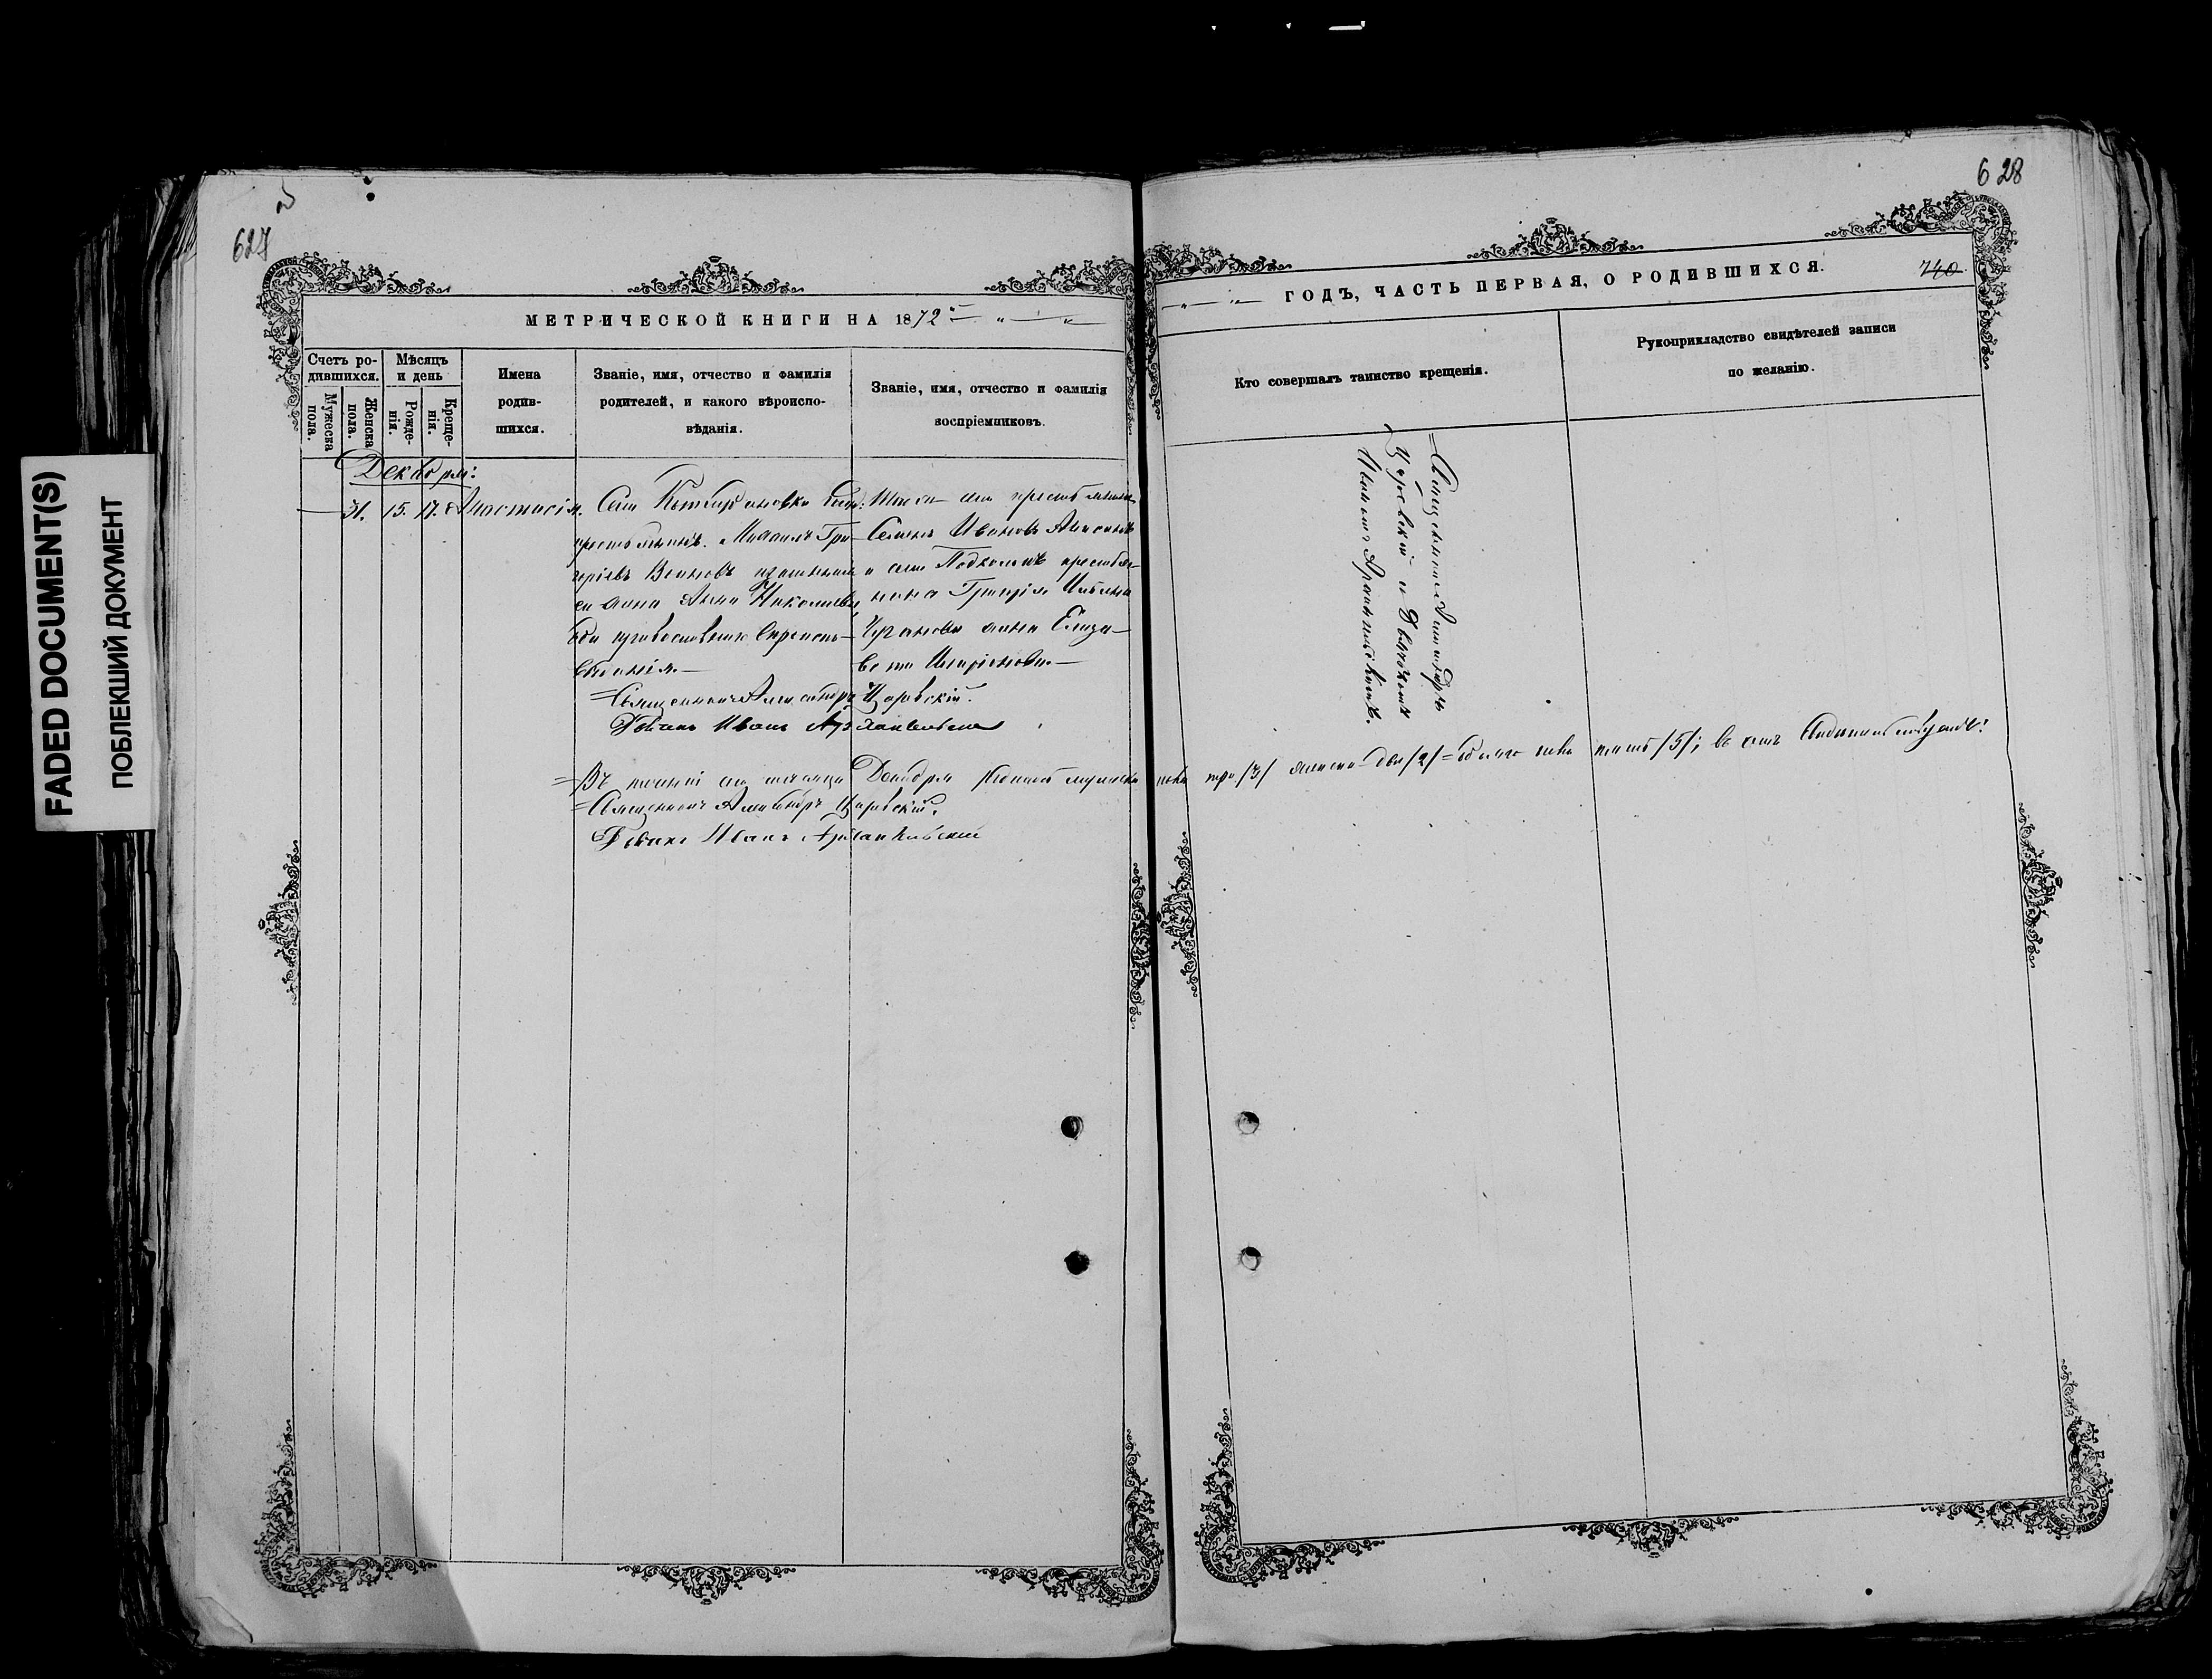 FADED DOCUMENT(S)
ПОБЛЕКШИЙ ДОКУМЕНТ
627
МЕТРИЧЕСКОЙ КНИГИ НА 1872
Счетъ родившихся.
Мужеска пола.
Женска пола.
Мѣсяцъ и день
Рожденія.
Крещенія.
Имена родившихся.
Званіе, имя, отчество и фамилія родителей, и какого вѣроисповѣданія.
Званіе, имя, отчество и фамилія воспріемниковъ.
Декабря:
31. 15. 17. Анастасія.
Села
крестьянинъ. Михаилъ Гри-
горіевъ законная
его жена Анна Николаева,
оба православнаго вѣроиспо-
вѣданія.
села крестьянинъ
Семенъ Ивановъ
и села крестья-
нина Григорія
жена Елиза-
вета
Священникъ Александръ Царевскій.
Дьяконъ Иванъ Архангельскій
Въ теченіи сего мѣсяца Декабря родилось мужеска пола три /3/ женска два /2/ = обоего пола пять /5/;
Священникъ Александръ Царевскій.
Дьяконъ Иванъ Архангельскій
628
740
ГОДЪ, ЧАСТЬ ПЕРВАЯ, О РОДИВШИХСЯ.
Кто совершалъ таинство крещенія.
Рукоприкладство свидѣтелей записи по желанію.
Священникъ Александръ
Царевскій и Дьякономъ
Иваномъ Архангельскимъ.